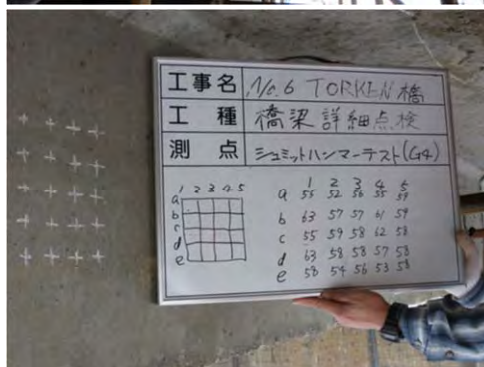 工事名 No.6 TORKEN橋
工種 橋梁詳細点検
測点 シュミットハンマーテスト(G4)
1 2 3 4 5
a
b
c
d
e
1 2 3 4 5
a 55 52 56 55 59
b 63 57 57 61 59
c 55 59 58 62 58
d 63 58 58 57 58
e 58 54 56 53 58